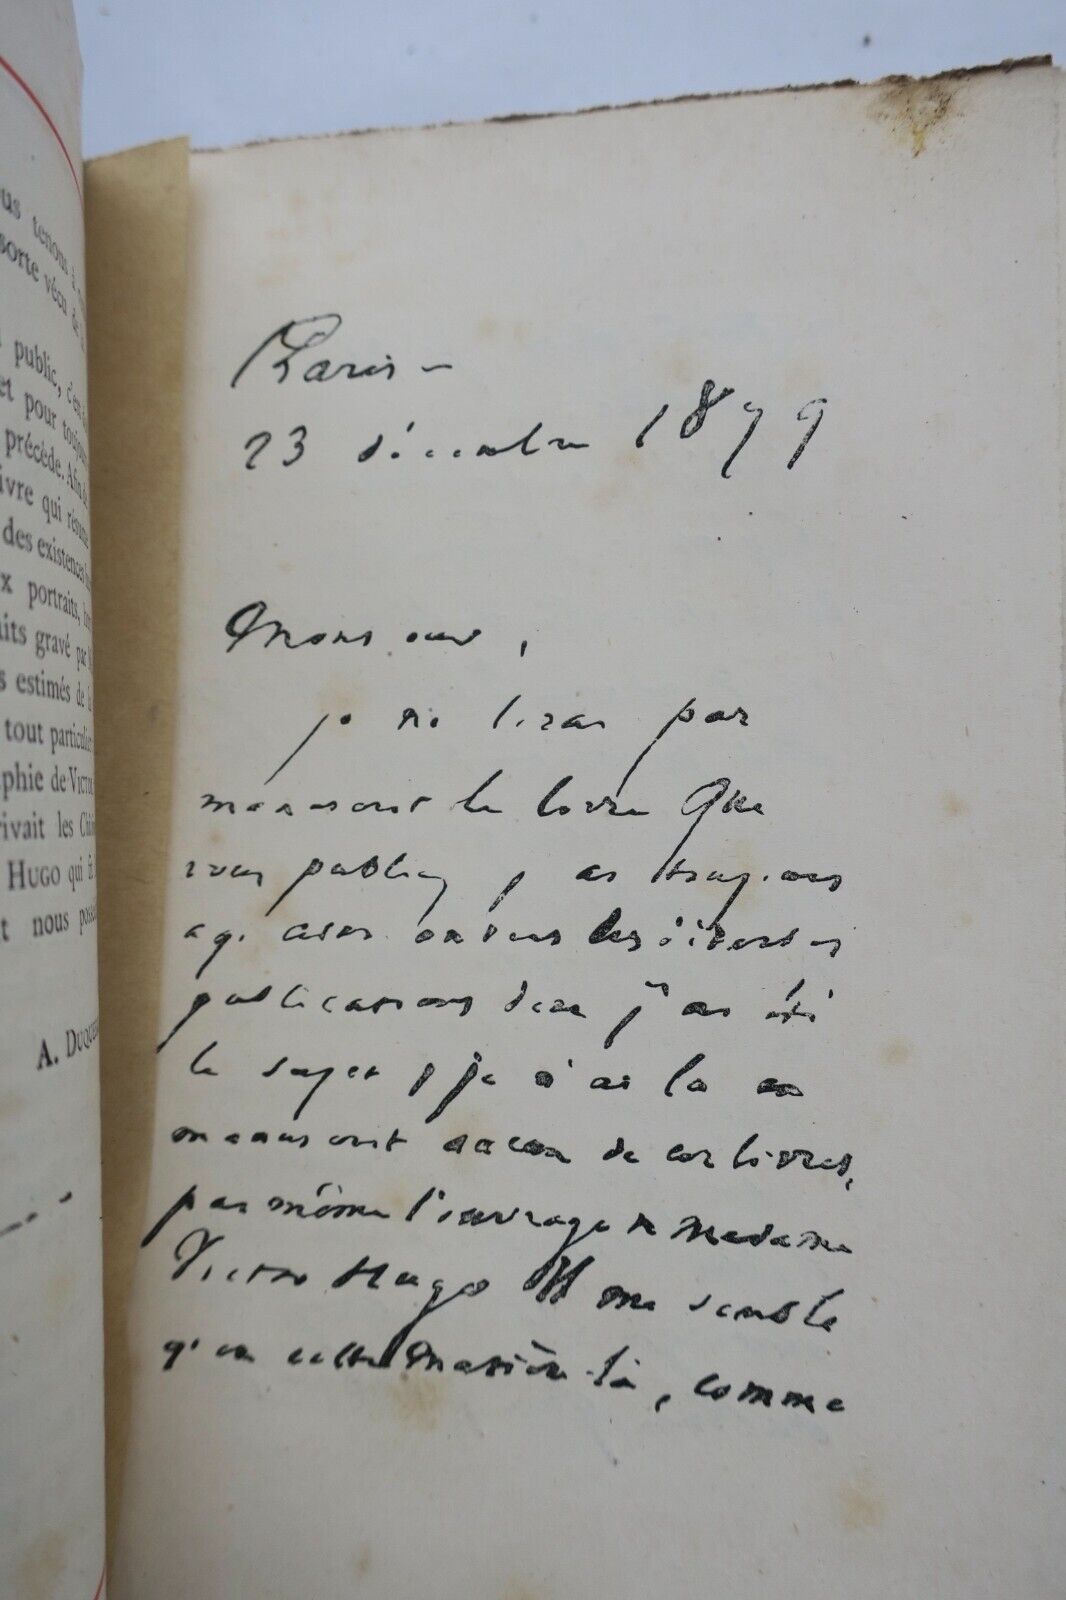 ous tenons à
sorte vécu de
public, c'est
et pour toujours
précède. Afin de
ivre qui résume
des existences
x portraits,
uits gravé par
s estimés de
tout particulier
phie de VICTOR
rivait les Châ
HUGO qui
t nous
A. DUQUE
Paris –
23 décembre 1879
Monsieur,
je ne lirai pas
manuscrit le livre que
vous publiez, j'ai toujours
agi ainsi envers les diverses
publications dont j'ai été
le sujet, je n'ai lu en
manuscrit aucun de ces livres,
pas même l'ouvrage de Madame
Victor Hugo. Il me semble
qu'en cette matière-là, comme